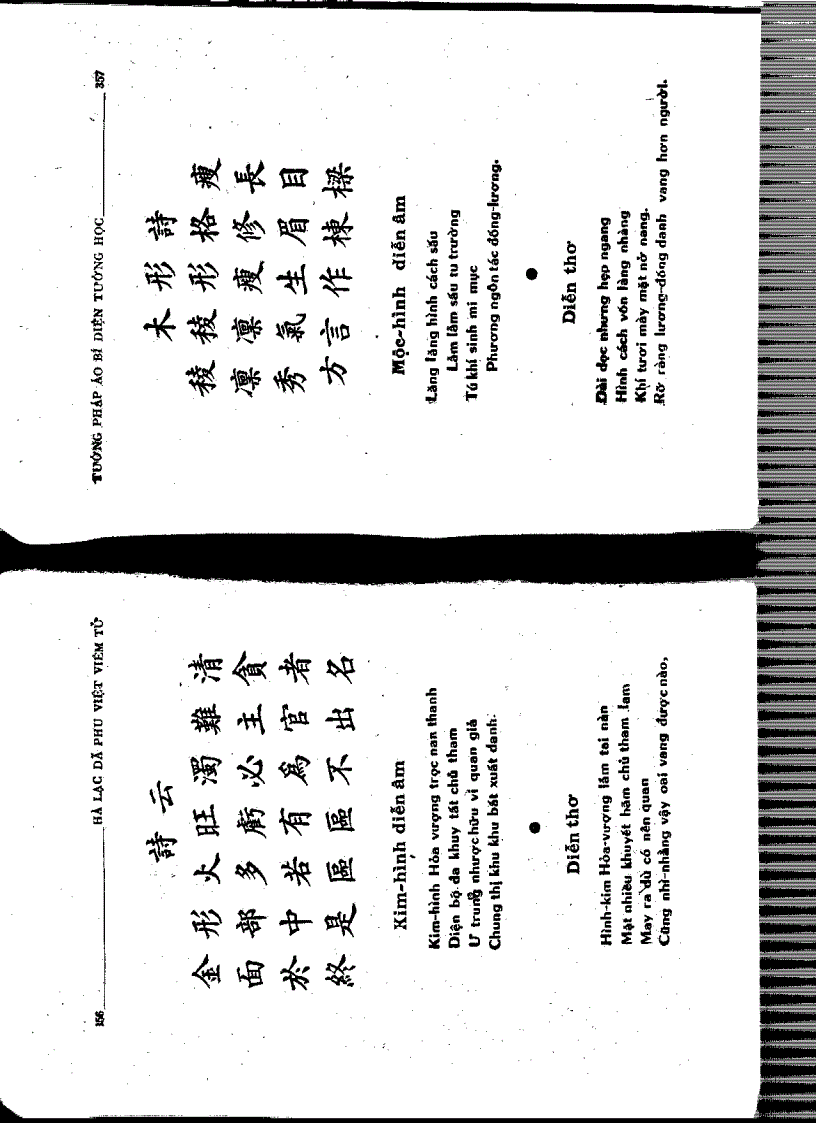 156 HÀ LẠC DÃ PHU VIỆT VIÊM TỬ
詩云
金形火旺濁難清
面部多虧必主貪
於中若有爲官者
終是區區不出名
Kim-hình diễn âm
Kim-hình Hỏa vượng trọc nan thanh
Diện bộ đa khuy tất chủ tham
Ư trung nhược hữu vi quan giả
Chung thị khu khu bất xuất danh.
Diễn thơ
Hình-kim Hỏa-vượng lắm tai nàn
Mặt nhiều khuyết hãm chủ tham lam
May ra dù có nên quan
Cũng nhì-nhằng vậy oai vang được nào,
TƯỚNG PHÁP ÁO BÍ DIỆN TƯỚNG HỌC 357
木形詩
稜稜形格瘦
凜凜瘦修長
秀氣生眉目
方言作棟樑
Mộc-hình diễn âm
Lăng lăng hình cách sấu
Lẫm lẫm sấu tu trường
Tú khí sinh mi mục
Phương ngôn tác đống-lương.
Diễn thơ
Dài dọc nhưng hẹp ngang
Hình cách vốn làng nhàng
Khí tươi mày mặt nở nang.
Rỡ ràng lương-đống danh vang hơn người.